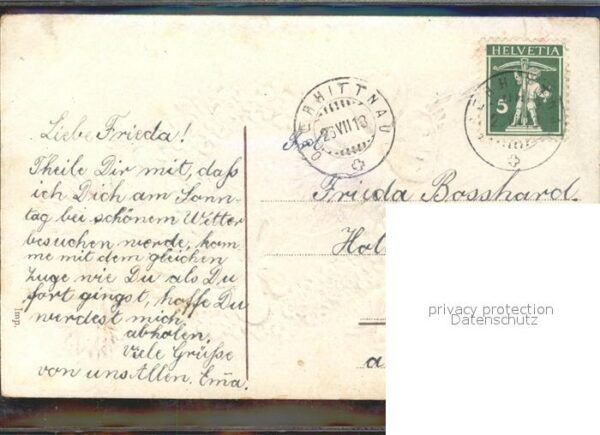 HELVETIA
5
OBERHITTNAU
25 VII 10
Liebe Frieda!
Theile Dir mit, daß
ich Dich am Sonn-
tag bei schönem Wetter
besuchen werde, kom
me mit dem gleichen
Zuge wie Du als Du
fort gingst, hoffe Du
werdest mich
abholen.
Viele Grüße
von uns Allen. Emma.
Frl.
Frieda Bosshard.
Hol
a
Imp.
privacy protection
Datenschutz